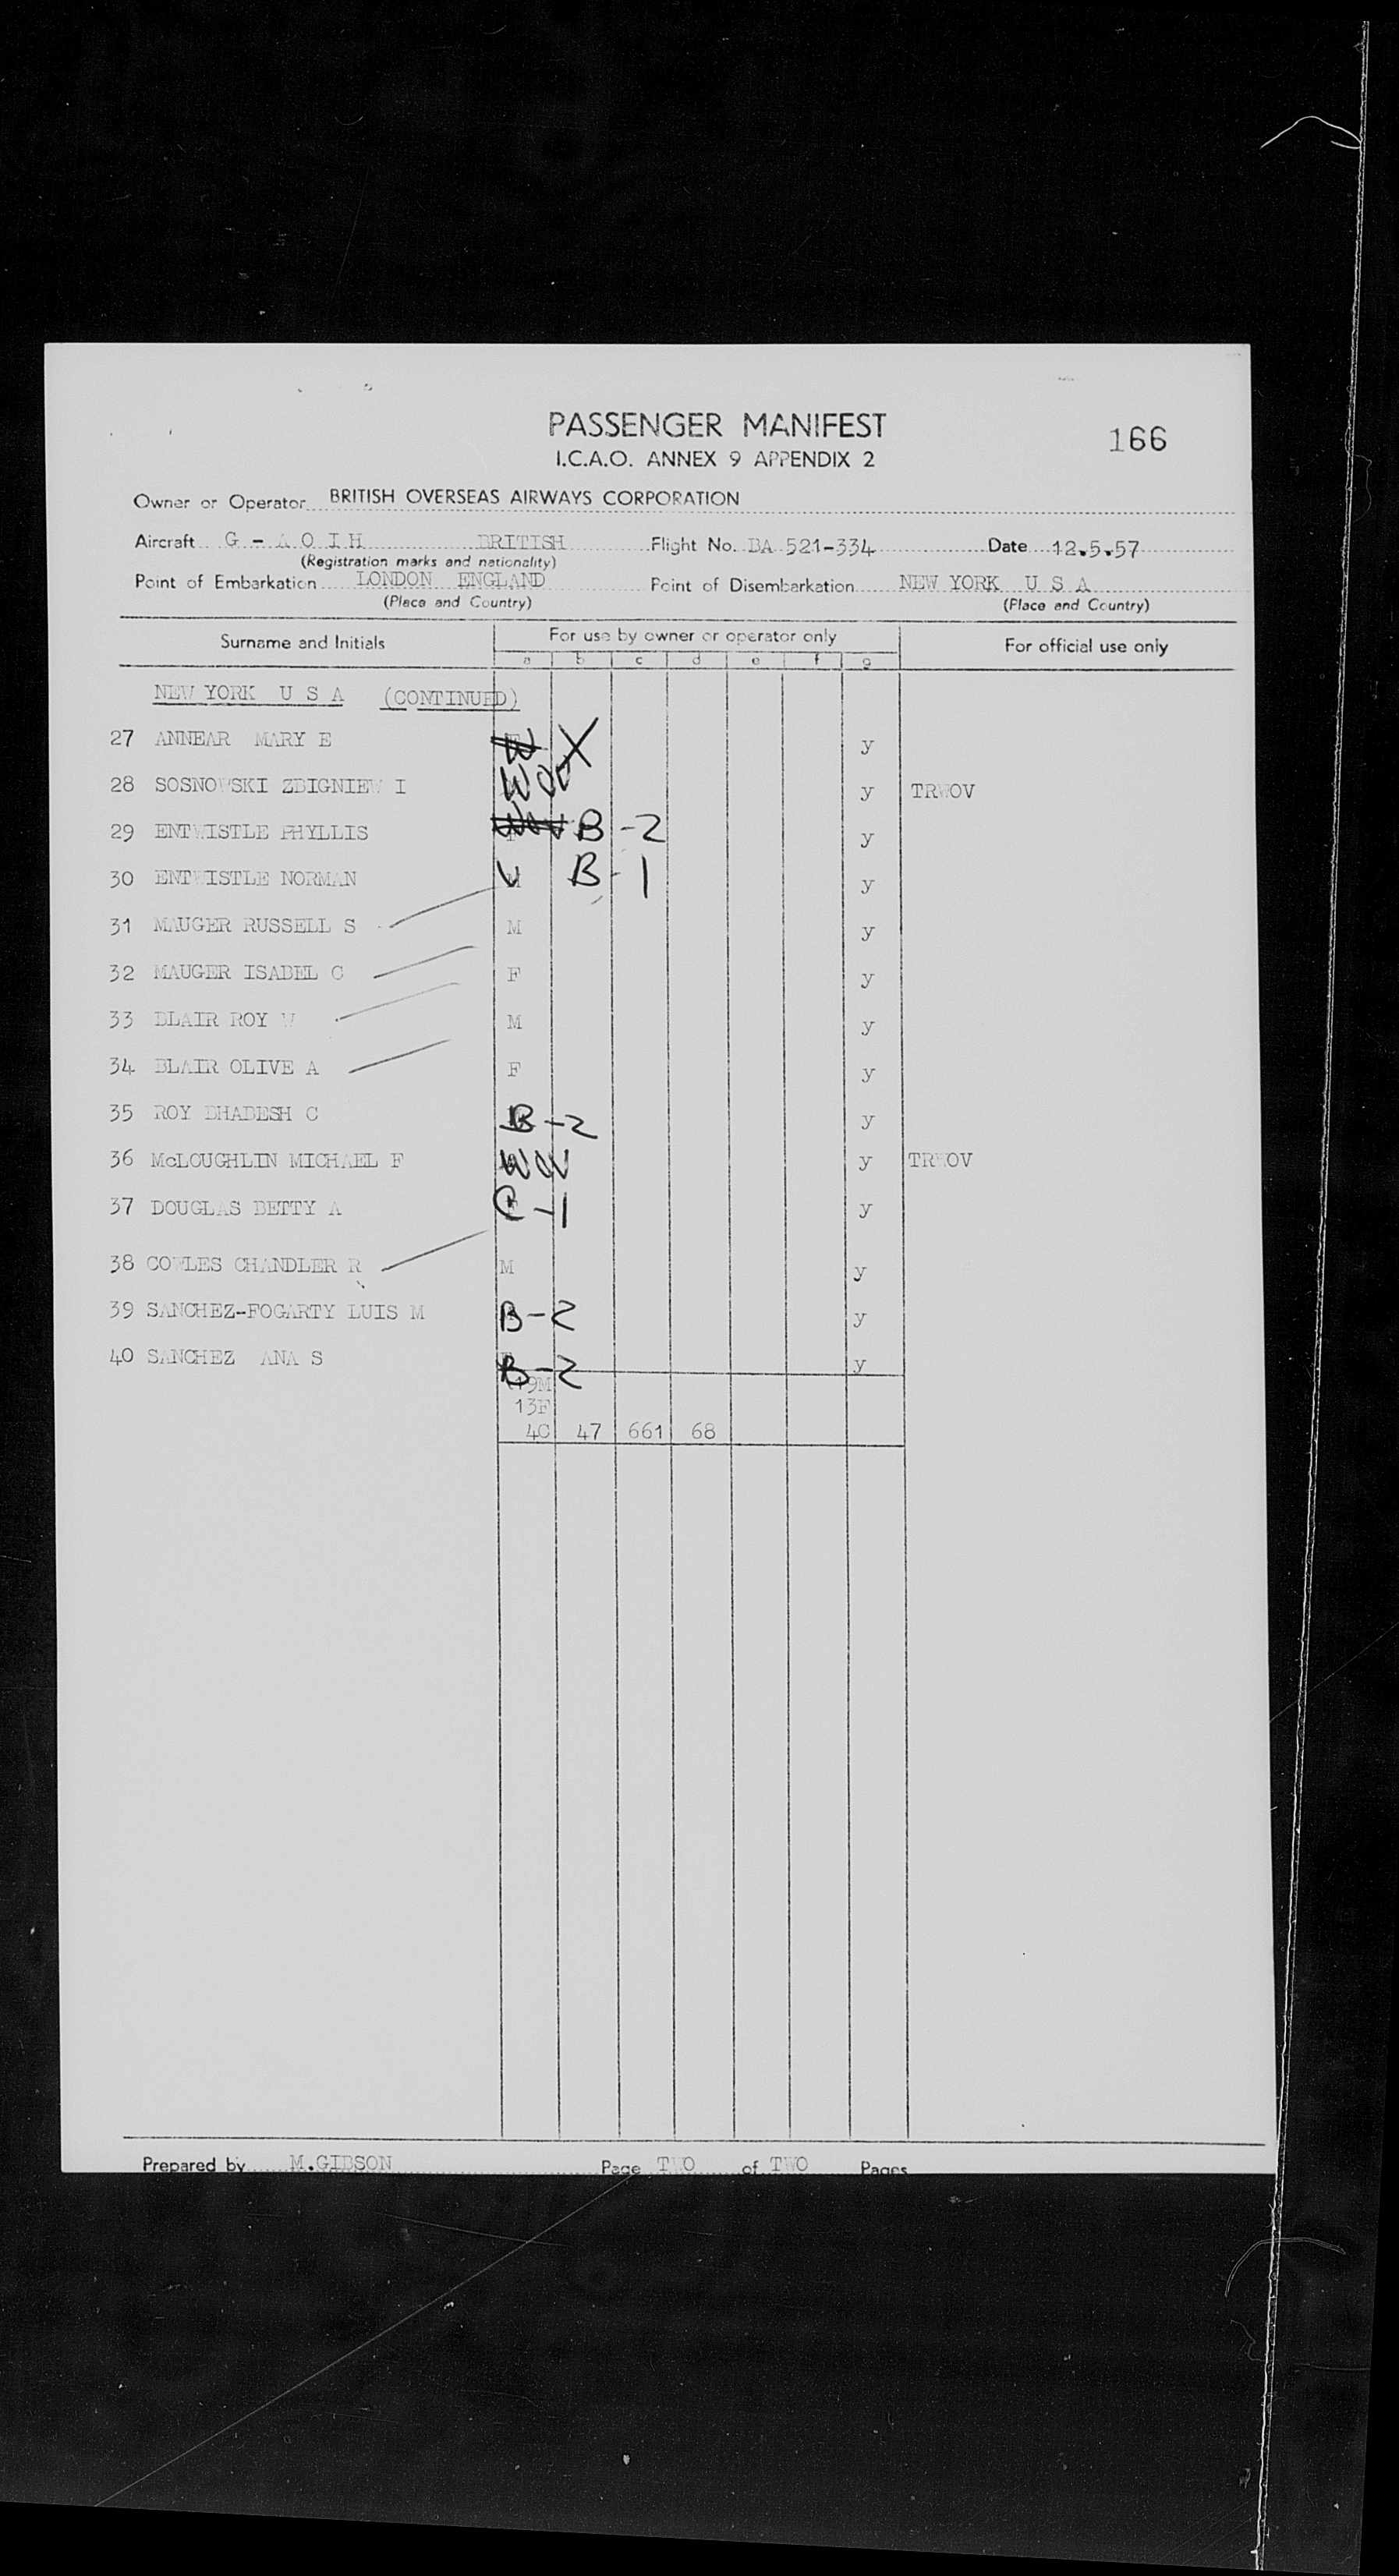 PASSENGER MANIFEST
166
I.C.A.O. ANNEX 9 APPENDIX 2
Owner or Operator BRITISH OVERSEAS AIRWAYS CORPORATION
Aircraft G - A O I H BRITISH Flight No. BA 521-334 Date 12.5.57
(Registration marks and nationality)
Point of Embarkation LONDON ENGLAND Point of Disembarkation NEW YORK U S A
(Place and Country) (Place and Country)
Surname and Initials For use by owner or operator only For official use only
a b c d e f g
NEW YORK U S A (CONTINUED)
27 ANNEAR MARY E X y
28 SOSNOWSKI ZBIGNIEW I y TRWOV
29 ENTWISTLE PHYLLIS B-2 y
30 ENTWISTLE NORMAN B-1 y
31 MAUGER RUSSELL S M y
32 MAUGER ISABEL C F y
33 BLAIR ROY W M y
34 BLAIR OLIVE A F y
35 ROY BHABESH C B-2 y
36 McLOUGHLIN MICHAEL F WOV y TRWOV
37 DOUGLAS BETTY A C-1 y
38 COWLES CHANDLER R M y
39 SANCHEZ-FOGARTY LUIS M B-2 y
40 SANCHEZ ANA S B-2 y
19M
13F
4C 47 661 68
Prepared by M.GIBSON Page TWO of TWO Pages